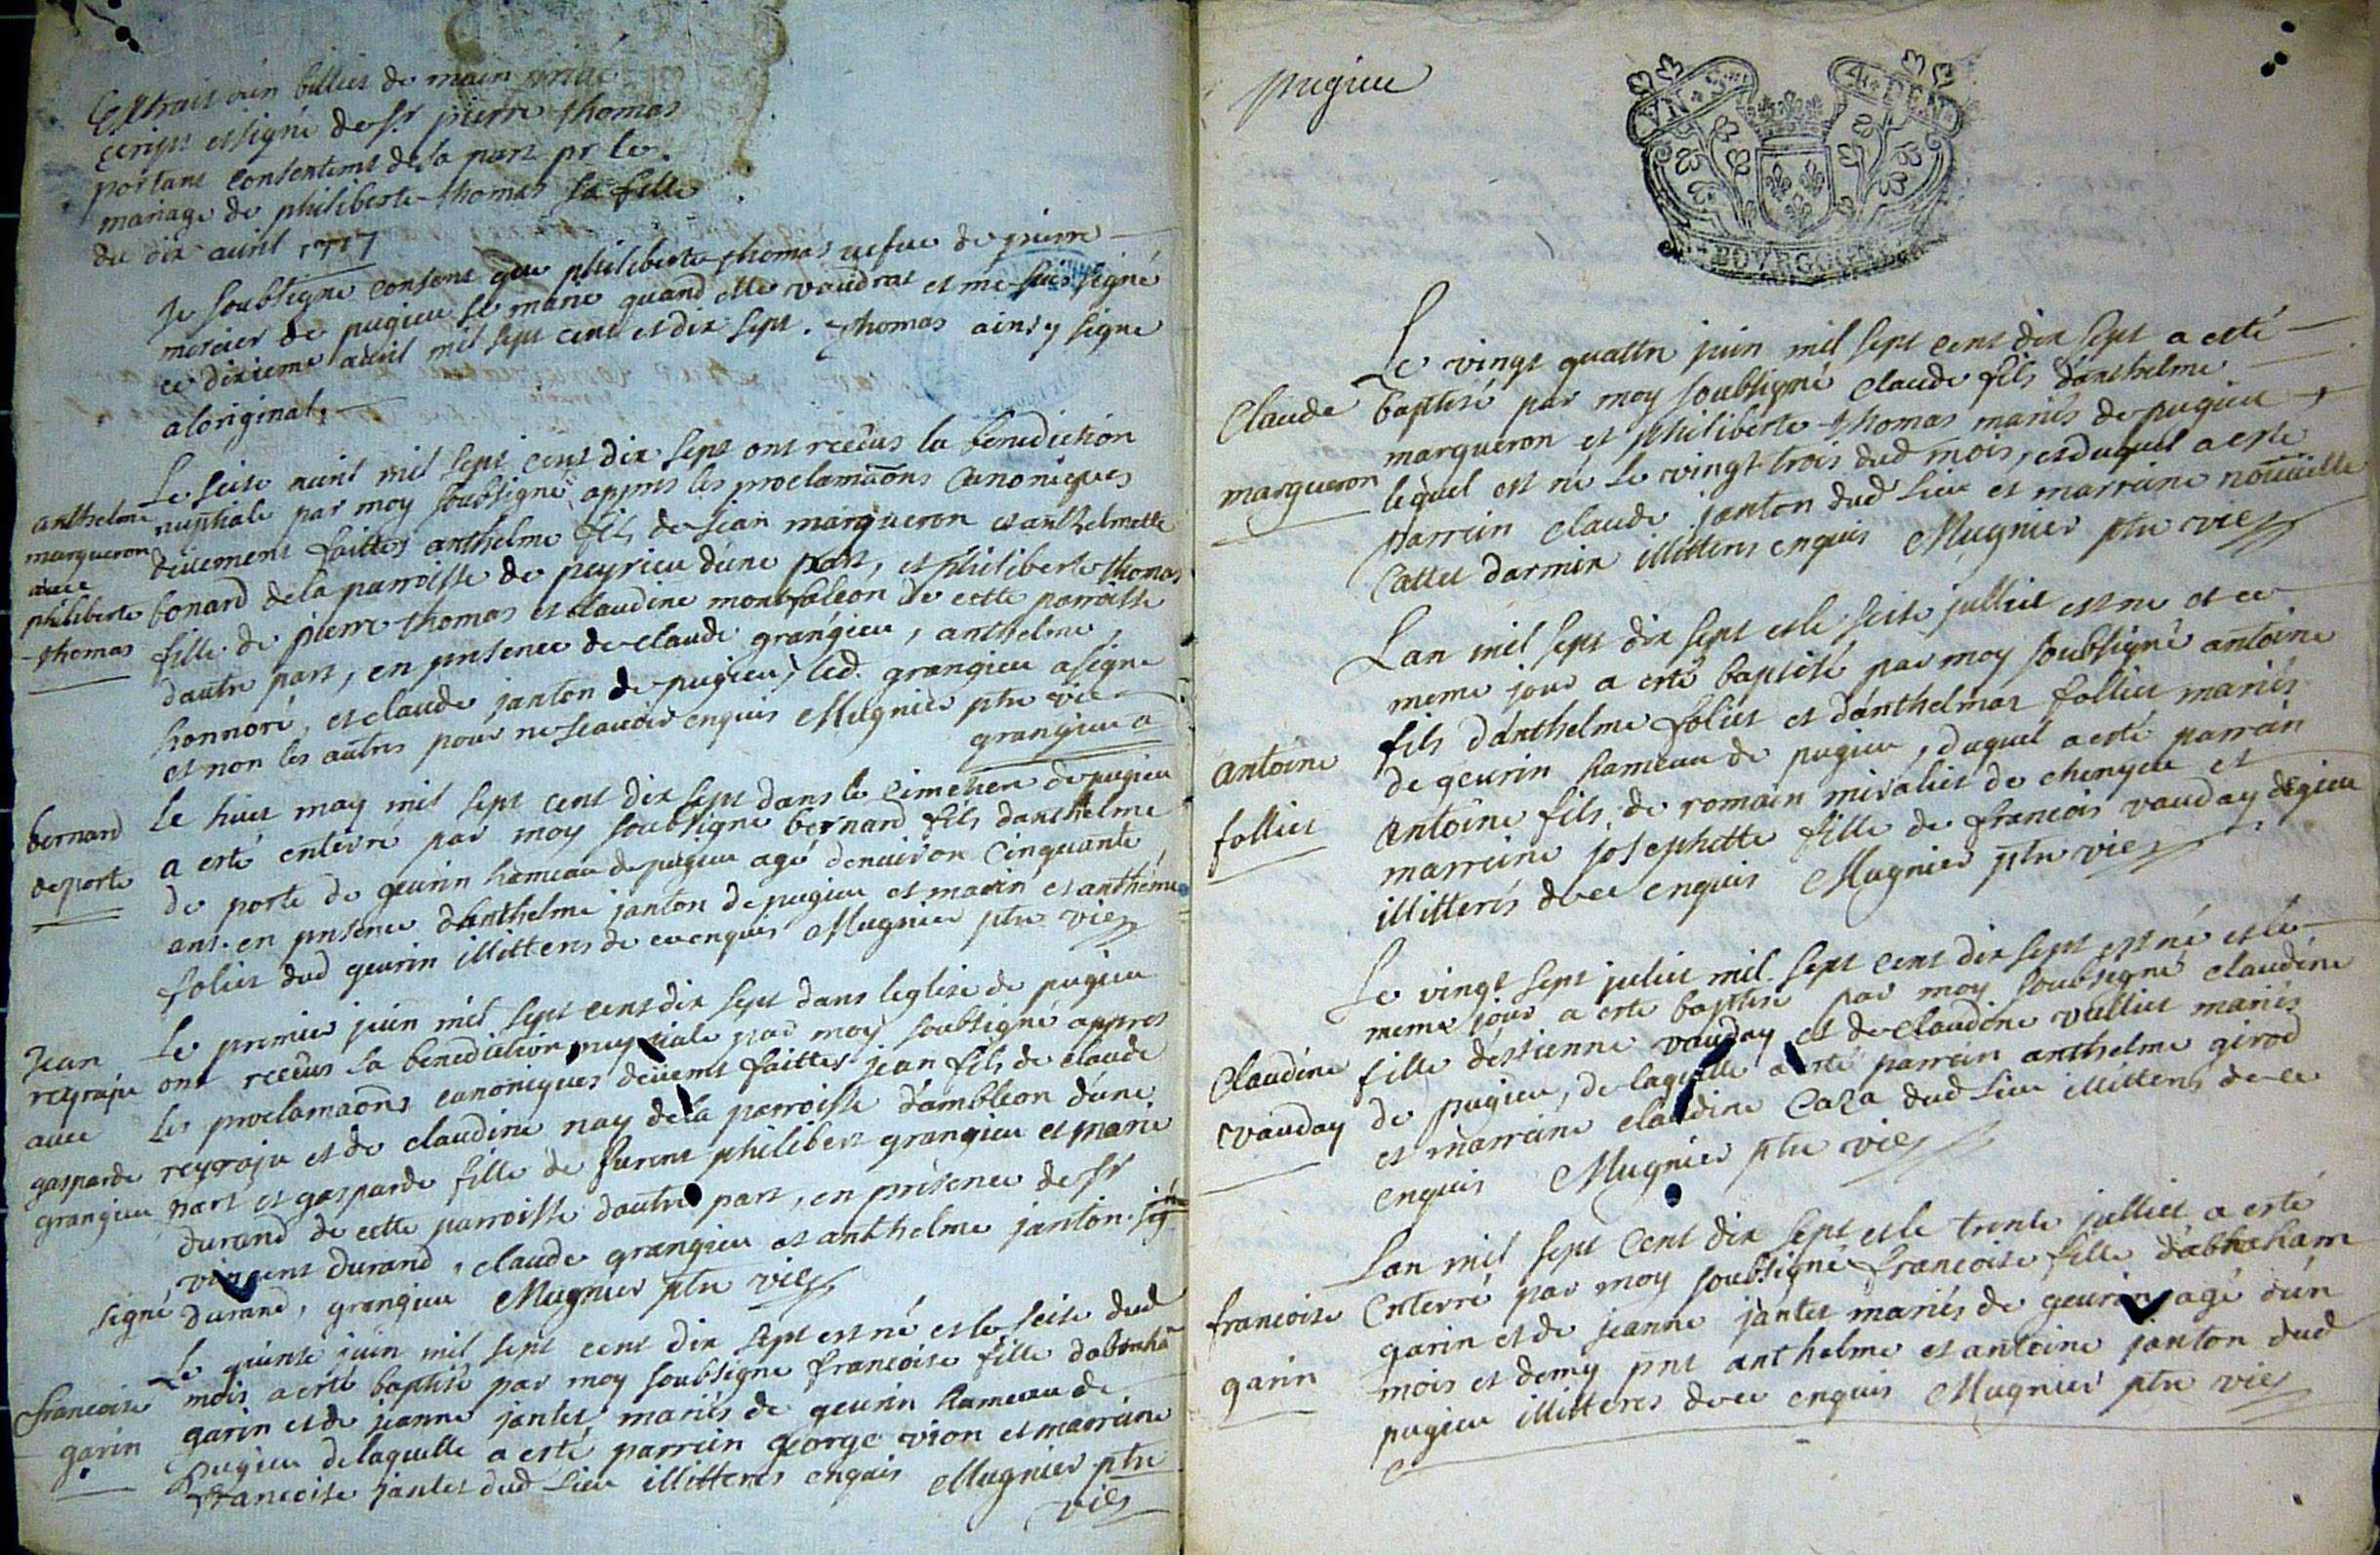 Extrait d'un billiet de main privé
escript et signé de sr pierre thomas
portant consentemt de sa part pr le
mariage de philiberte thomas sa fille
du dix avril 1717
Je soubsigne consent que philiberte thomas vefue de pierre
mercier de pugieu se marie quand elle voudrat et me suis signé
ce dixieme avril mil sept cent et dix sept. Thomas ainsy signe
a loriginal.
anthelme margueron avec philiberte thomas
Le seise avril mil sept cent dix sept ont receus la benediction
nuptiale par moy soubsigne, appres les proclamaons canoniques
deüement faittes anthelme fils de Jean margueron et anthelmette
bonard de la parroisse de peyrieu dune part, et philiberte thomas
fille de pierre thomas et claudine montfaleon de cette parroisse
dautre part, en pnsence de claude grangieu, anthelme
honnoré, et claude janton de pugieu, led. grangieu a signe
et non les autres pour ne scauoir enquis Mugnier ptre vic
grangieu
bernard deporte
Le huit may mil sept cent dix sept dans le cimetier de pugieu
a esté enterre par moy soubsigne bernard fils danthelme
de porte de geurin hameau de pugieu agé denuiron cinquante
ans. en pnsence danthelme janton de pugieu et et anthelme
foliet dud geurin illitteres de ce enquis Mugnier ptre vic
Jean reyraju avec gasparde grangieu
Le premier juin mil sept cent dix sept dans leglise de pugieu
ont receus la benediction nuptiale par moy soubsigné appres
les proclamaons canoniques deüemt faittes jean fils de claude
reyraju et de claudine nay de la parroisse d'ambleon d'une
part et gasparde fille de furent philibert grangieu et marie
durand de cette parroisse dautre part, en présence de sr
vincent durand, claude grangieu et anthelme janton.
signé durand, grangieu Mugnier ptre vic
francoise garin
Le quinse juin mil sept cent dix sept est né et le seise dud
mois a esté baptisé par moy soubsigne francoise fille dabraha
garin et de jeanne jantet, mariés de geurin hameau de
Pugieu de laquelle a esté parrein george vion et marreine
francoise jantet dud lieu illitteres enquis Mugnier ptre
vic
pugieu
VN S. 4. DEN.
BOVRGOGNE
Claude margueron
Le vingt quattre juin mil sept cent dix sept a esté
baptisé par moy soubsigné claude fils d'anthelme
margueron et philiberte thomas mariés de pugieu
lequel est né le vingt trois dud mois, et duquel a esté
parrein claude janton dud lieu et marreine
Cattet darmix illitteres enquis Mugnier ptre vic
antoine folliet
Lan mil sept dix sept et le seise julliet est né et ce
meme jour a esté baptisé par moy soubsigné antoine
fils d'anthelme foliet et d'anthelmaz folliet mariés
de geurin hameau de pugieu, duquel a esté parrain
antoine fils de romain mivaliet de chengeu et
marreine josephette fille de francois vauday
illitterés de ce enquis Mugnier ptre vic
Claudine vauday
Le vingt sept juliet mil sept cent dix sept est né et le
meme jour a esté baptisé par moy soubsigné claudine
fille d'estienne vauday et de claudine vulliet mariés
de pugieu, de laquelle a esté parrein anthelme girod
et marreine claudine Caza dud lieu illitteres de ce
enquis Mugnier ptre vic
francoise garin
Lan mil sept cent dix sept et le trente julliet a esté
enterré par moy soubsigné francoise fille d'abraham
garin et de jeanne jantet mariés de geurin agé d'un
mois et demy pnt anthelme et antoine janton dud
pugieu illitteres de ce enquis Mugnier ptre vic